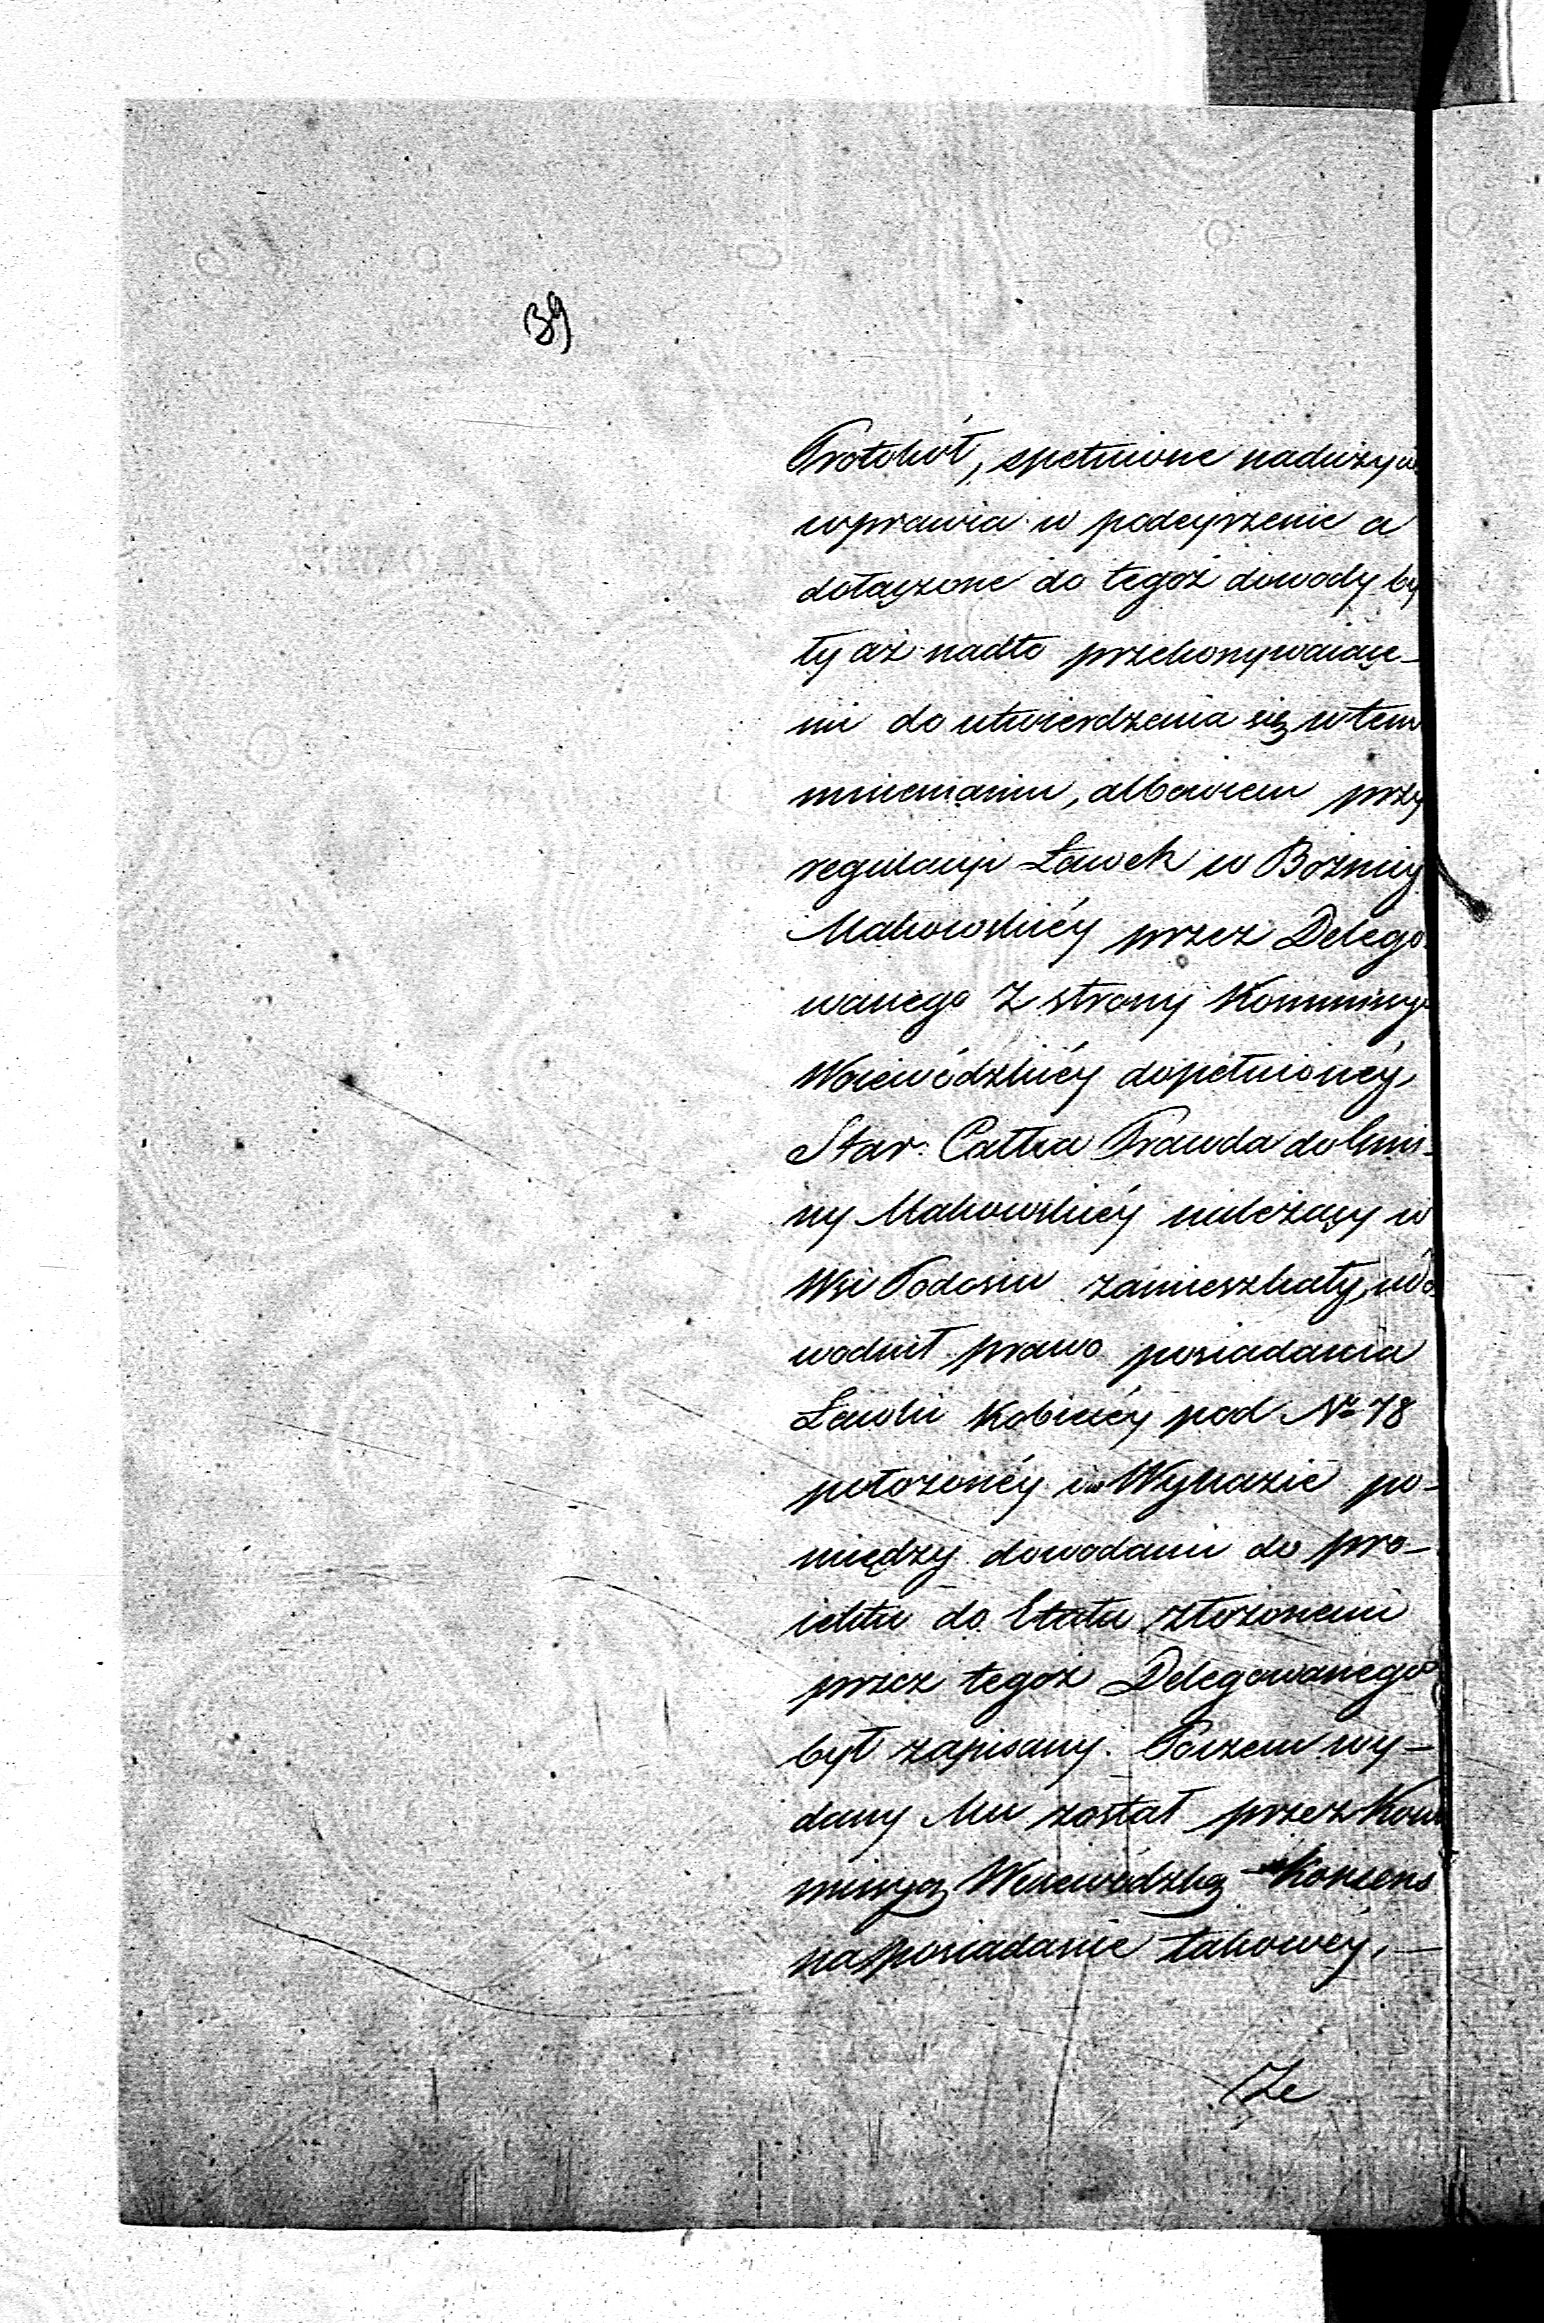 39
Protokół, spełnione nadużyci
wprawia w podeyrzenie a
dołączone do tegoż dowody by
ły aż nadto przekonywaiące-
mi do utwierdzenia się w tem
mniemaniu, albowiem przy
regulacyi Ławek w Bożnicy
Makowskiéy przez Delego
wanego Z strony Kommissyi
Woiewódzkiéy dopełnionéy
Star: Calka Prawda do Gmi-
ny Makowskiéy należący w
Wsi Podosiu zamieszkały, udo
wodnił prawo posiadania
Ławki Kobiecéy pod No 78
położonéy i w Wykazie po-
między dowodami do pro-
iektu do Etatu złożonemi
przez tegoż Delegowanego
był zapisany. Poczem wy-
dany Mu został przez Kom
missyą Woiewódzką Konsens
na posiadanie takowéy, —
Ze